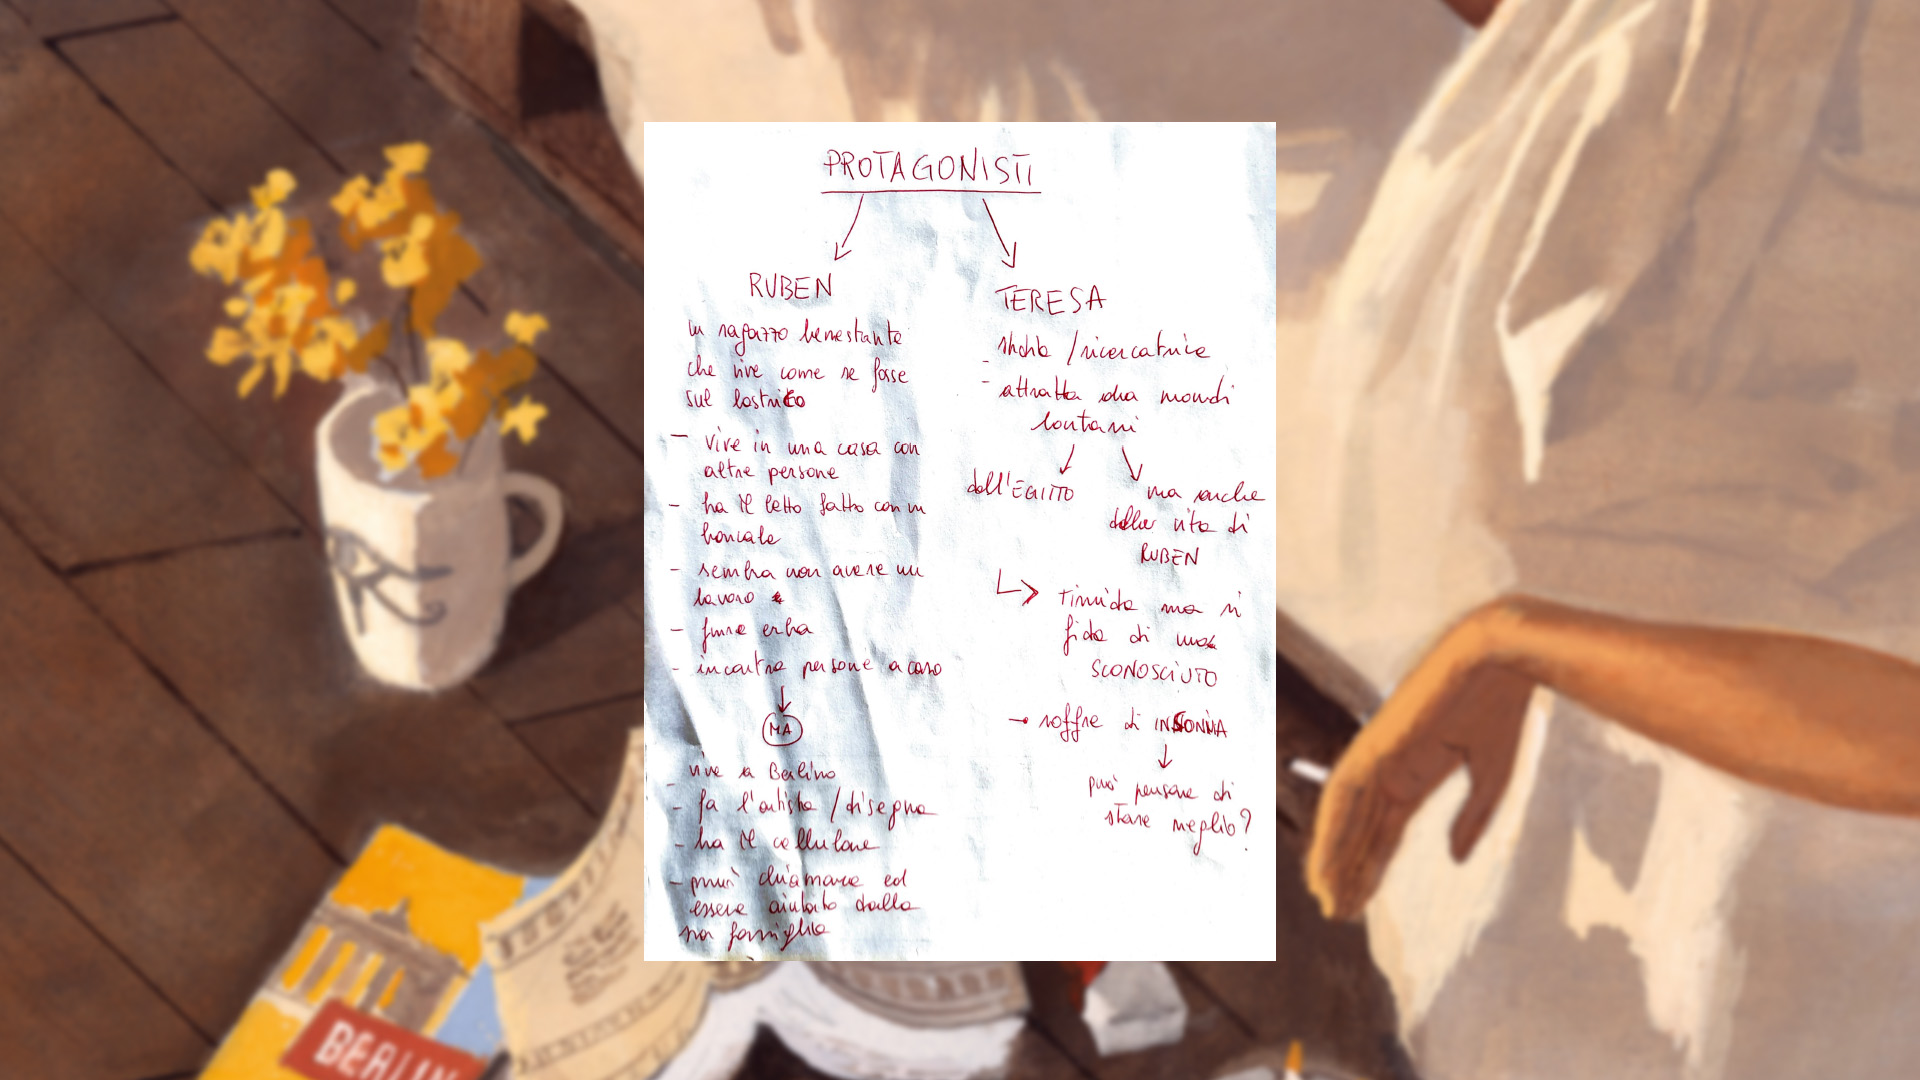 PROTAGONISTI
RUBEN
un ragazzo benestante
che vive come se fosse
sul lastrico
- vive in una casa con
altre persone
- ha il letto fatto con un
bancale
- sembra non avere un
lavoro
- fuma erba
- incontra persone a caso
MA
- vive a Berlino
- fa l'artista / disegna
- ha il cellulare
- può chiamare ed
essere aiutato dalla
sua famiglia
TERESA
- / ricercatrice
- attratta da mondi
lontani
dall'EGITTO
ma anche
dalla vita di
RUBEN
timida ma si
fida di uno
SCONOSCIUTO
soffre di INSONNIA
può pensare di
stare meglio?
BERLIN